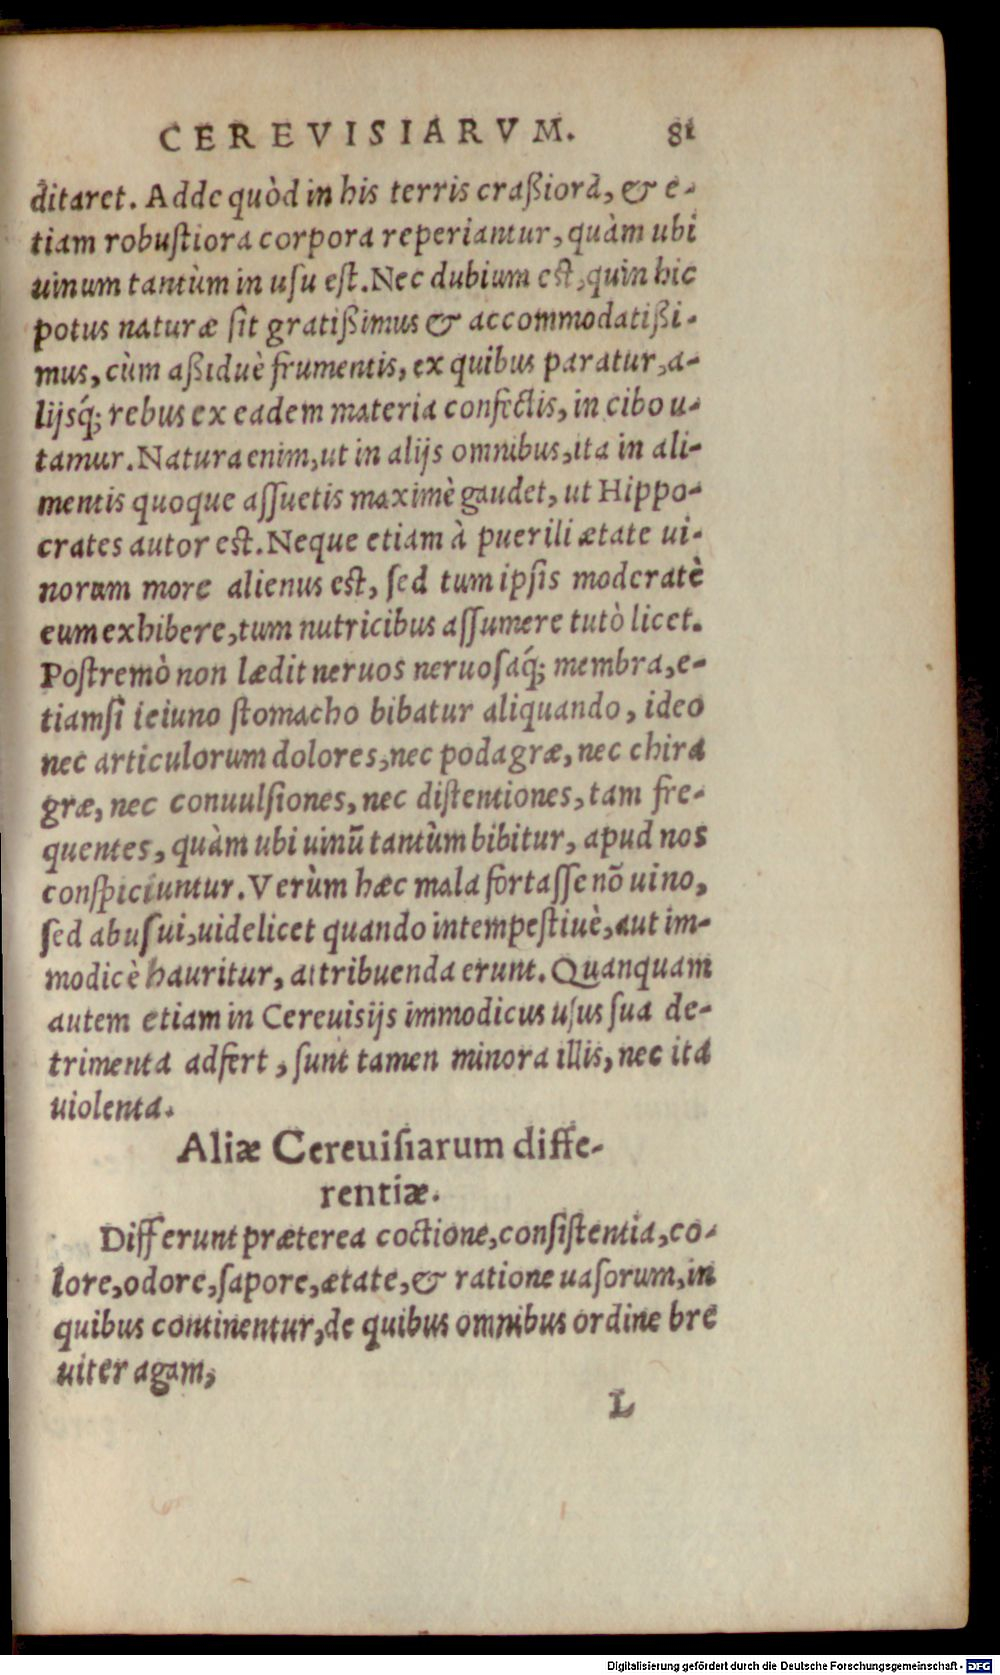 CEREVISIARVM. 81
ditaret. Adde quòd in his terris craßiora, & e-
tiam robustiora corpora reperiantur, quàm ubi
uinum tantùm in usu est. Nec dubium est, quin hic
potus naturæ sit gratißimus & accommodatißi-
mus, cùm aßiduè frumentis, ex quibus paratur, a-
lijsq́; rebus ex eadem materia confectis, in cibo u-
tamur. Natura enim, ut in alijs omnibus, ita in ali-
mentis quoque assuetis maximè gaudet, ut Hippo-
crates autor est. Neque etiam à puerili ætate ui-
norum more alienus est, sed tum ipsis moderatè
eum exhibere, tum nutricibus assumere tutò licet.
Postremò non lædit neruos neruosaq́; membra, e-
tiamsi ieiuno stomacho bibatur aliquando, ideo
nec articulorum dolores, nec podagræ, nec chira
græ, nec conuulsiones, nec distentiones, tam fre-
quentes, quàm ubi uinū tantùm bibitur, apud nos
conspiciuntur. Verùm hæc mala fortasse nō uino,
sed abusui, uidelicet quando intempestiuè, aut im-
modicè hauritur, attribuenda erunt. Quanquam
autem etiam in Cereuisijs immodicus usus sua de-
trimenta adfert, sunt tamen minora illis, nec ita
uiolenta.
Aliæ Cereuisiarum diffe-
rentiæ.
Differunt præterea coctione, consistentia, co-
lore, odore, sapore, ætate, & ratione uasorum, in
quibus continentur, de quibus omnibus ordine bre
uiter agam,
L
Digitalisierung gefördert durch die Deutsche Forschungsgemeinschaft - DFG